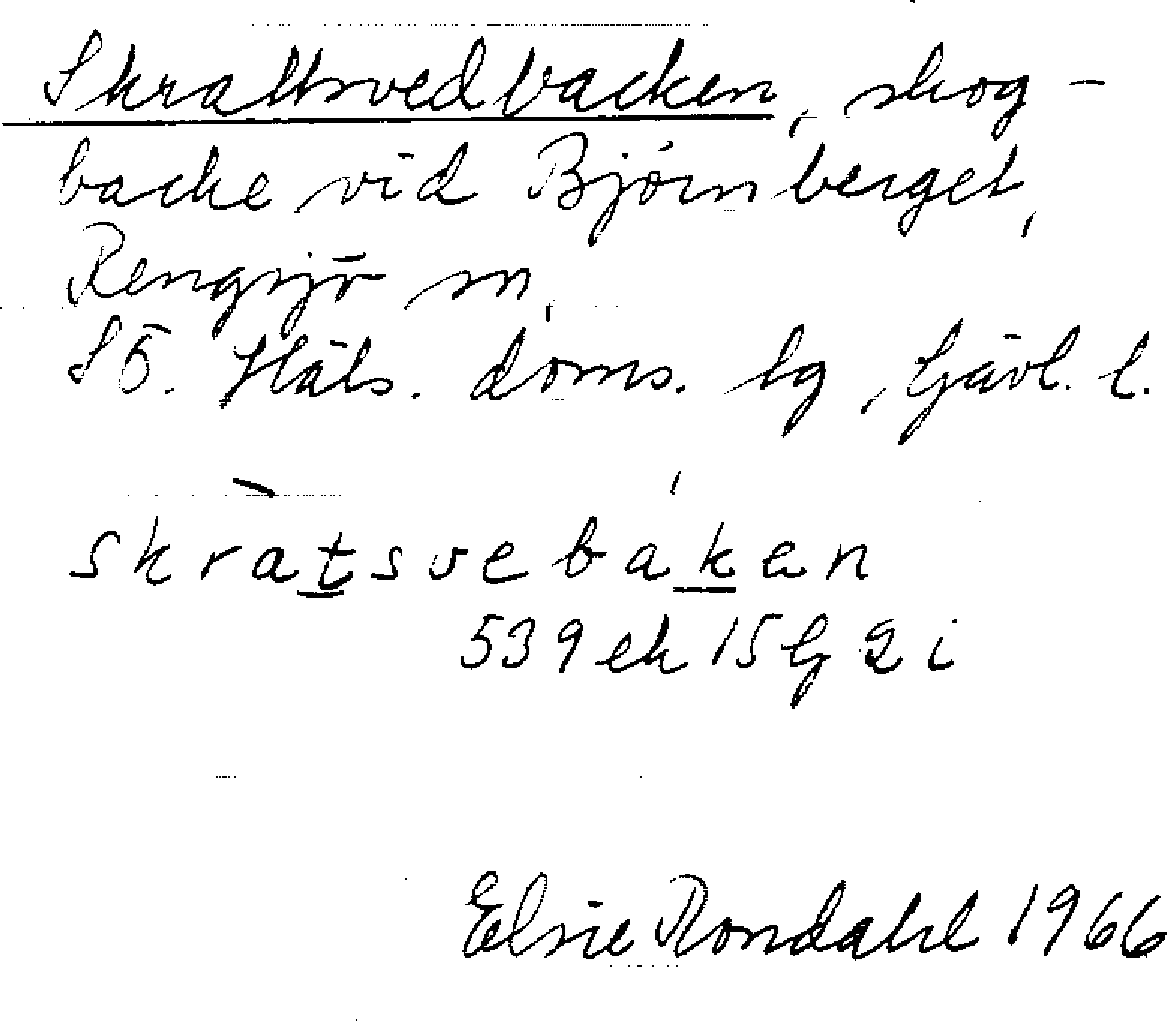 Skrattsvedbacken, skog-
backe vid Björnberget,
Rengsjö sn,
SÖ. Häls. doms. lg, Gävl. l.
skràtsvebáken
539 ek 15G 2i
Elsie Rondahl 1966